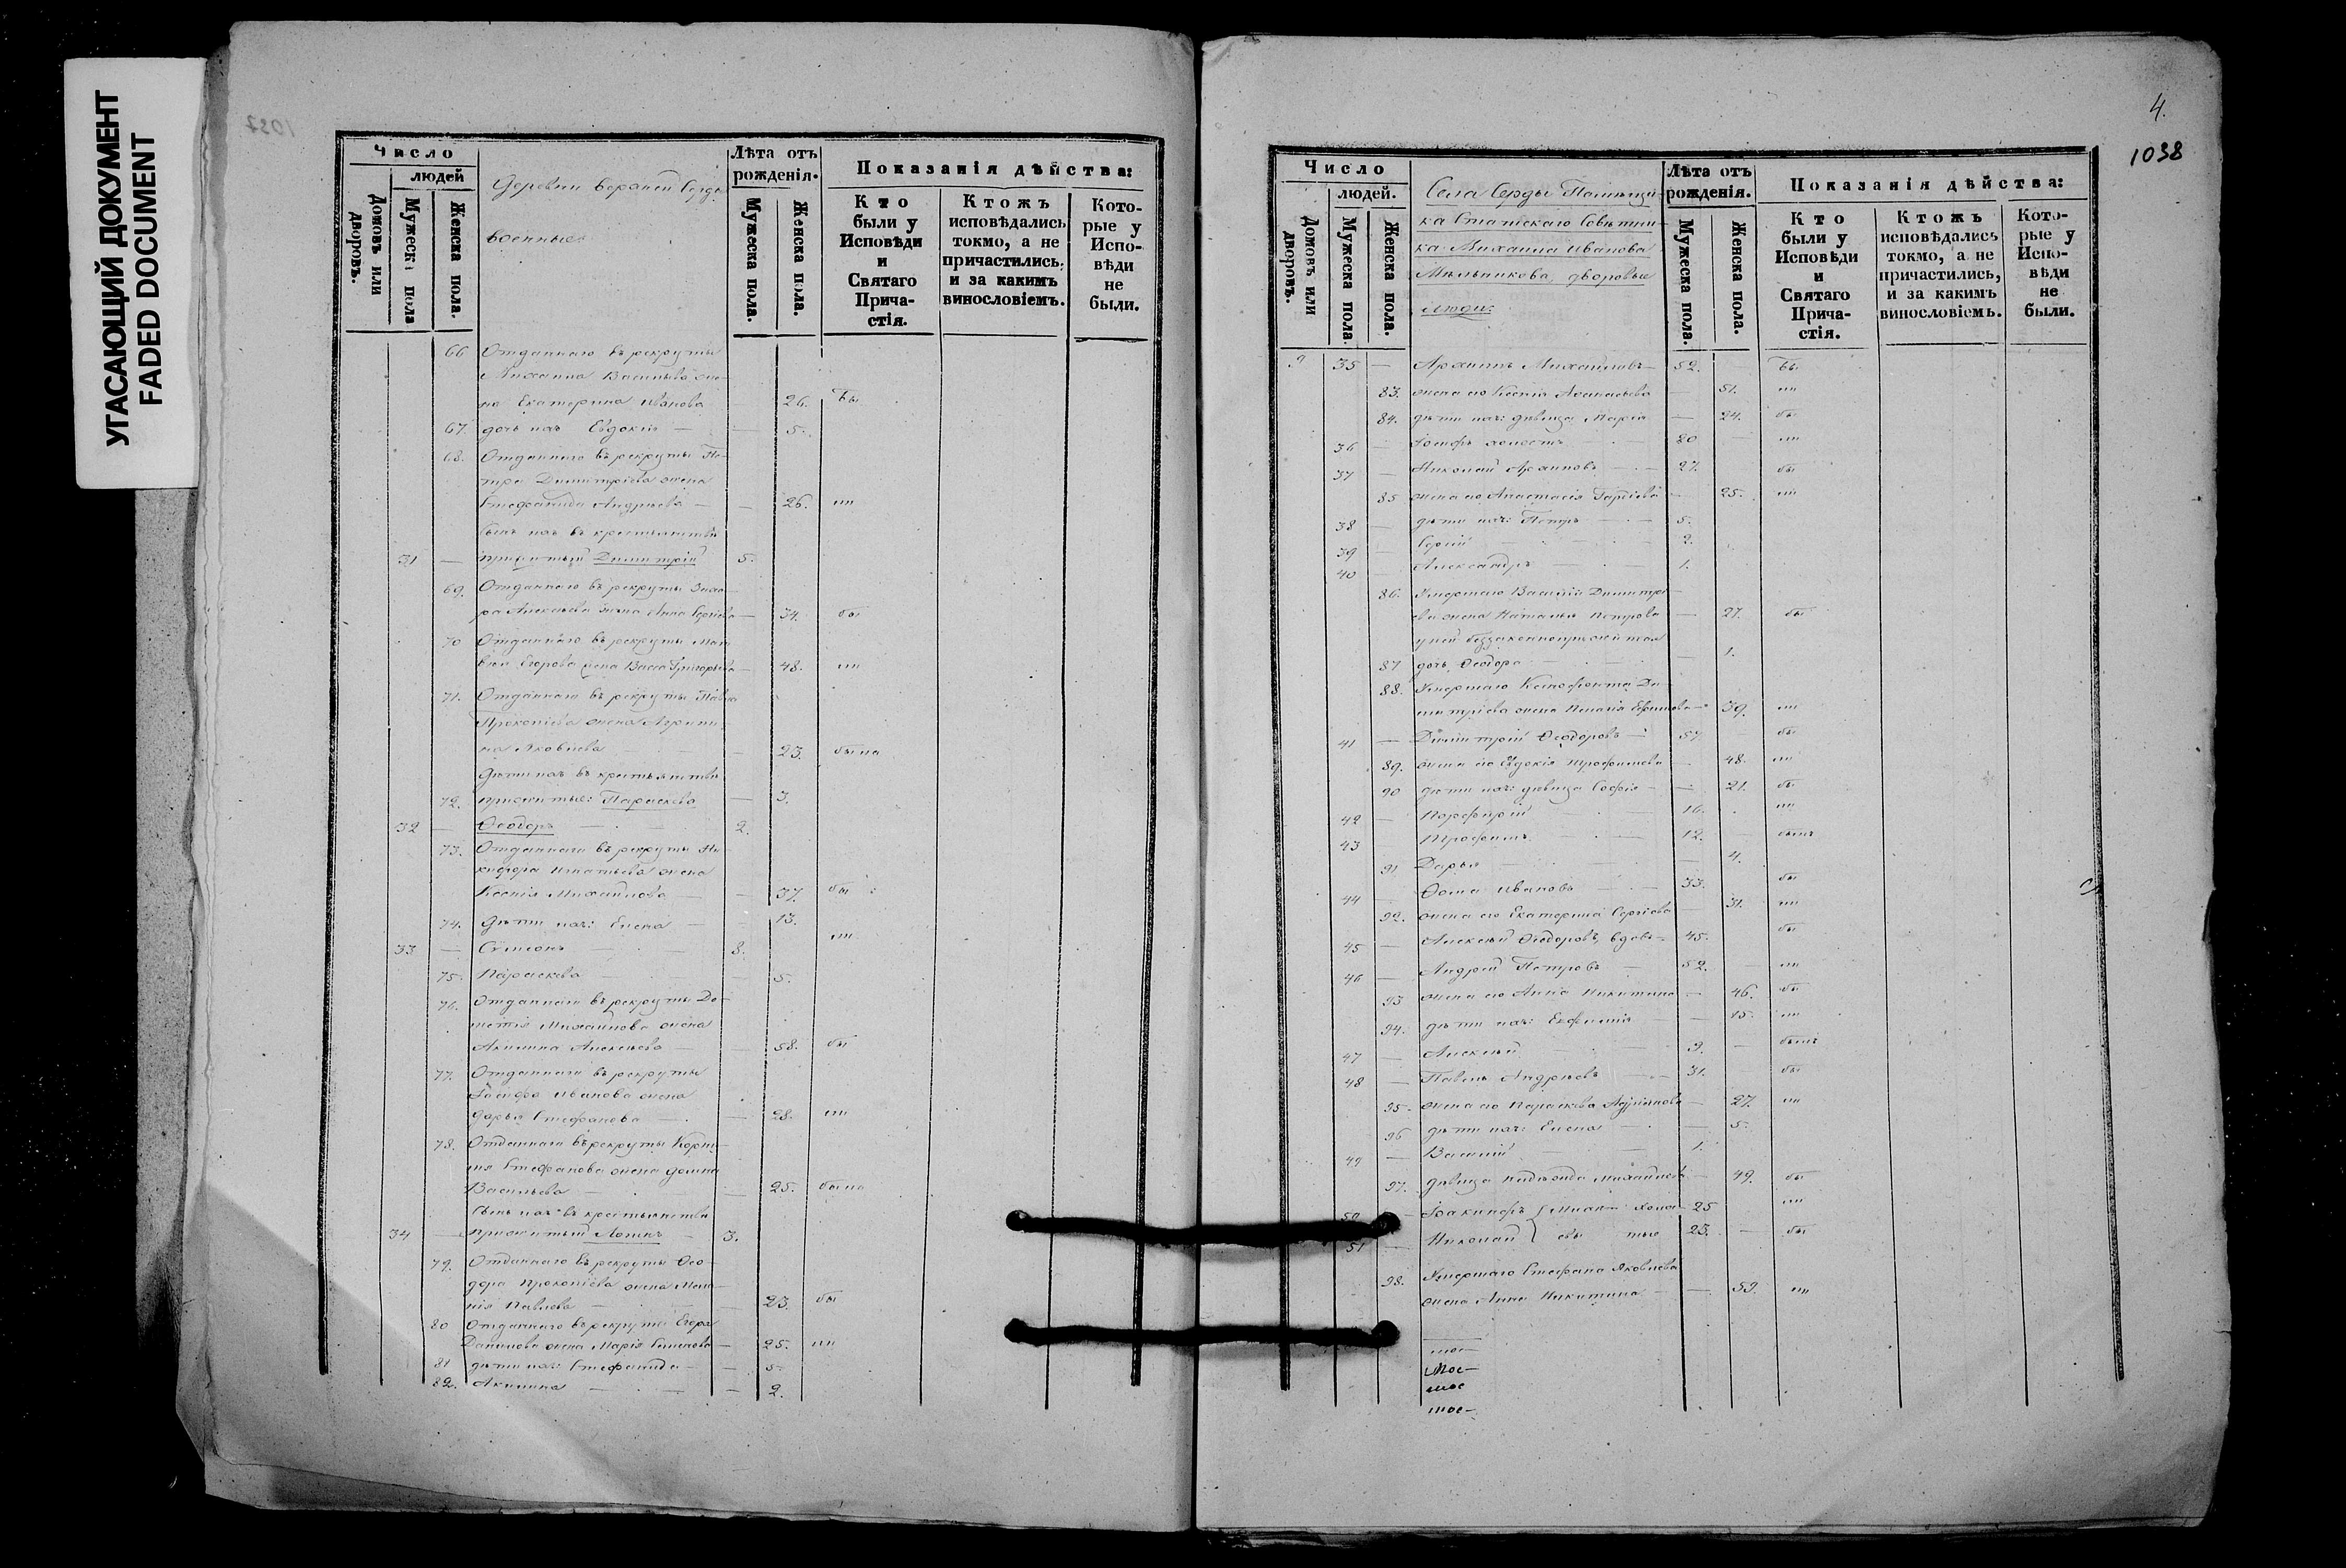 УГАСАЮЩИЙ ДОКУМЕНТ
FADED DOCUMENT
Число
людей
Домовъ или дворовъ.
Мужеска пола
Женска пола.
Деревни Верхней Серды
военные
Лѣта отъ рожденія.
Мужеска пола.
Женска пола.
Показанія дѣйства:
Кто были у Исповѣди и Святаго Прича-стія.
Ктожъ исповѣдались токмо, а не причастились, и за какимъ винословіемъ.
Кото-рые у Испо-вѣди не были.
66 Отданнаго въ рекруты
Михаила Васильева же-
на Екатерина Иванова 26. бы
67. дочь ихъ Евдокія — 5.
68. Отданнаго въ рекруты Пе-
тра Димитріева жена
Стефанида Андреева — 26.
сынъ ихъ въ крестьянствѣ
31 — прижитый Димитрій 5.
69. Отданнаго въ рекруты Заха-
ра Алексѣева жена Анна Сергѣева — 34. бы
70 Отданнаго въ рекруты Мат-
вѣя Егорова жена Васса Григорьева — 48.
71. Отданнаго въ рекруты Павла
Прокопіева жена Агрипи-
на Яковлева — 23. была
дѣти ихъ въ крестьянствѣ
72. прижитые: Параскева — 3.
32 — Ѳеодоръ — 2.
73. Отданнаго въ рекруты Ни-
кифора Игнатьева жена
Ксенія Михайлова — 37. бы
74. дѣти ихъ: Елена — 13.
33 — Сѵмеонъ — 8.
75. Параскева — 5.
76. Отданнаго въ рекруты Де-
ментія Михайлова жена
Акилина Алексѣева — 58. бы
77. Отданнаго въ рекруты
Іосифа Иванова жена
Дарья Стефанова — 28.
78. Отданнаго въ рекруты Корни-
лія Стефанова жена Домна
Васильева — 25. была
сынъ ихъ въ крестьянствѣ
34 — прижитый Логинъ — 3.
79. Отданнаго въ рекруты Ѳео-
дора Прокопіева жена Мела-
нія Павлова — 23. бы
80 Отданнаго въ рекруты Егора
Данилова жена Марія Семенова — 25.
81 дѣти ихъ: Стефанида — 5.
82. Акилина — 2.
4.
1038
Число
людей.
Домовъ или дворовъ.
Мужеска пола
Женска пола.
Села Серды Помѣщи-
ка Статскаго Совѣтни-
ка Михаила Иванова
Мельникова дворовые
люди:
Лѣта отъ рожденія.
Мужеска пола.
Женска пола.
Показанія дѣйства:
Кто были у Исповѣди и Святаго Прича-стія.
Ктожъ исповѣдались токмо, а не причастились, и за какимъ винословіемъ.
Кото-рые у Испо-вѣди не были.
35 — Архипъ Михайловъ — 52. бы
83. жена его Ксенія Аѳанасьева — 51.
84. дѣти ихъ: дѣвица Марія — 24. бы
36 Іосифъ холостъ — 20
37 — Николай Архиповъ — 27. бы
85 жена его Анастасія — 25.
38 — дѣти ихъ: Петръ — 5.
39 Сергій — 2.
40 Александръ — 1.
86. Умершаго Василія Димитріе-
ва жена Наталья Петрова — 27. бы
у ней беззаконноприжитая
87 дочь Ѳеодора — 1.
88. Умершаго Ксенофонта Ди-
митріева жена Пелагія Ефимова — 39.
41 — Димитрій Ѳеодоровъ — 57 бы
89. жена его Евдокія Трофимова — 48.
90 дѣти ихъ: дѣвица Софія — 21. бы
42 — Порфирій 16.
43 — Трофимъ — 12. былъ
91 Дарья — 4.
44 — Ѳома Ивановъ — 33. бы
92. жена его Екатерина Сергіева — 31.
45 — Алексѣй Ѳеодоровъ, вдовъ — 45. бы
46 — Андрей Петровъ — 52.
93 жена его Анна Никитина — 46. бы
94. дѣти ихъ: Евфимія — 15.
47 — Алексѣй — 9. былъ
48 — Павелъ Андреевъ — 31. бы
95. жена его Параскева — 27.
96 дѣти ихъ: Елена — 5.
49 — Василій — 1.
97. дѣвица Надежда Михайлова — 49. бы
50 — Іоакинфъ холос- 25
51 — Николай тые 23. — бы
98. Умершаго Стефана Яковлева
жена Анна Никитина — 59.